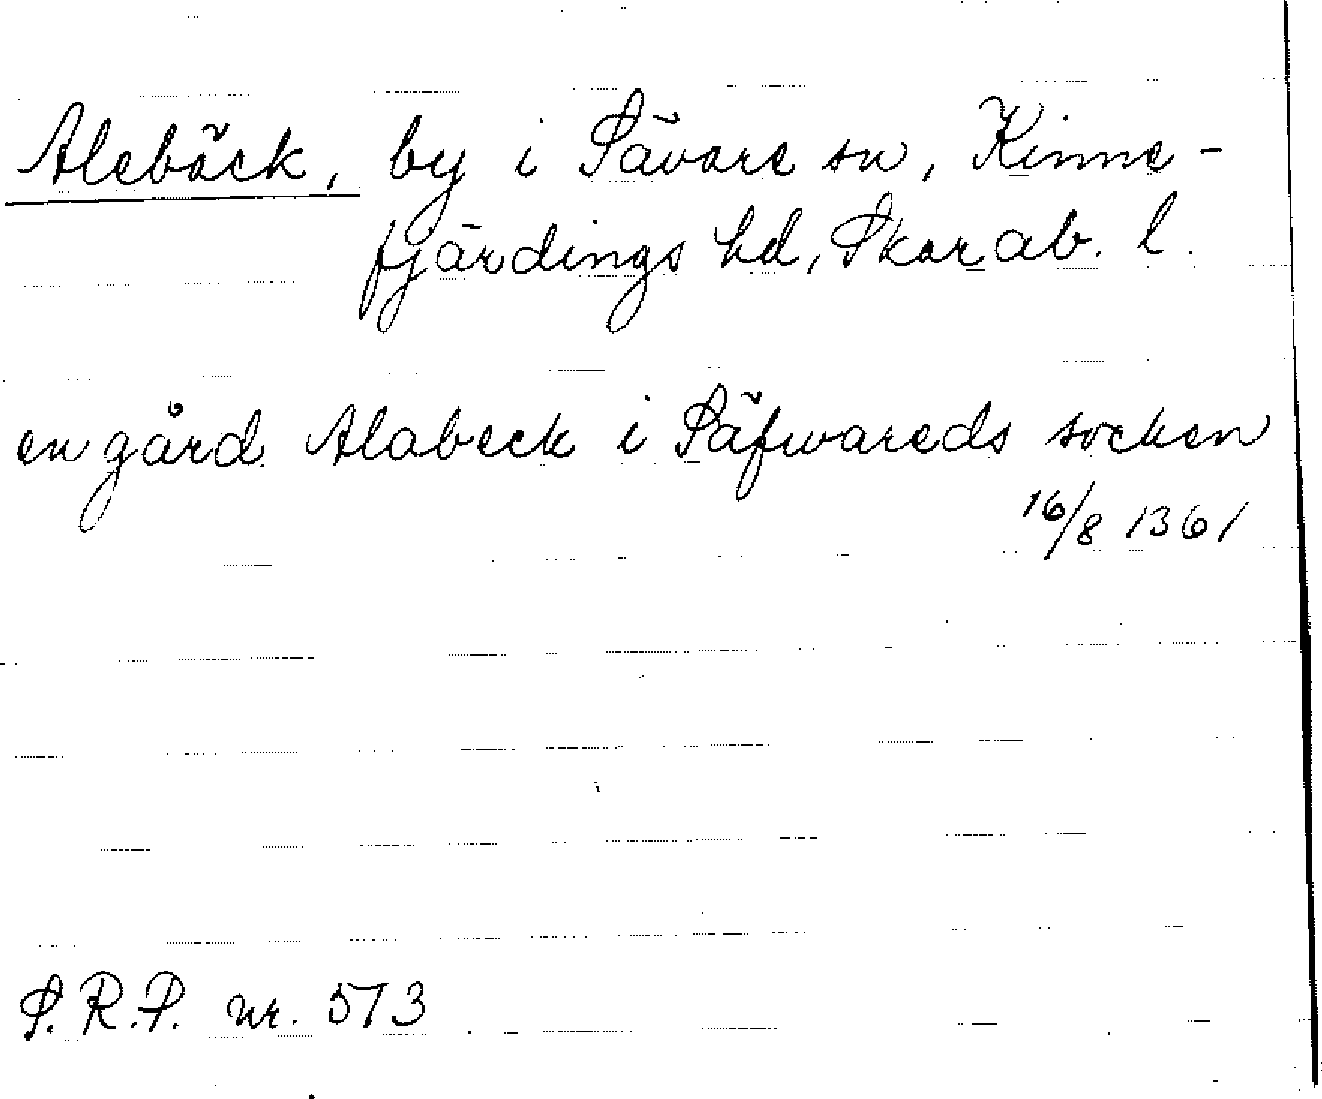 Alebäck, by i Sävare sn, Kinne-
fjärdings hd, Skarab. l.
en gård Alabeck i Säfwareds socken
16/8 1361
S.R.P. nr. 573